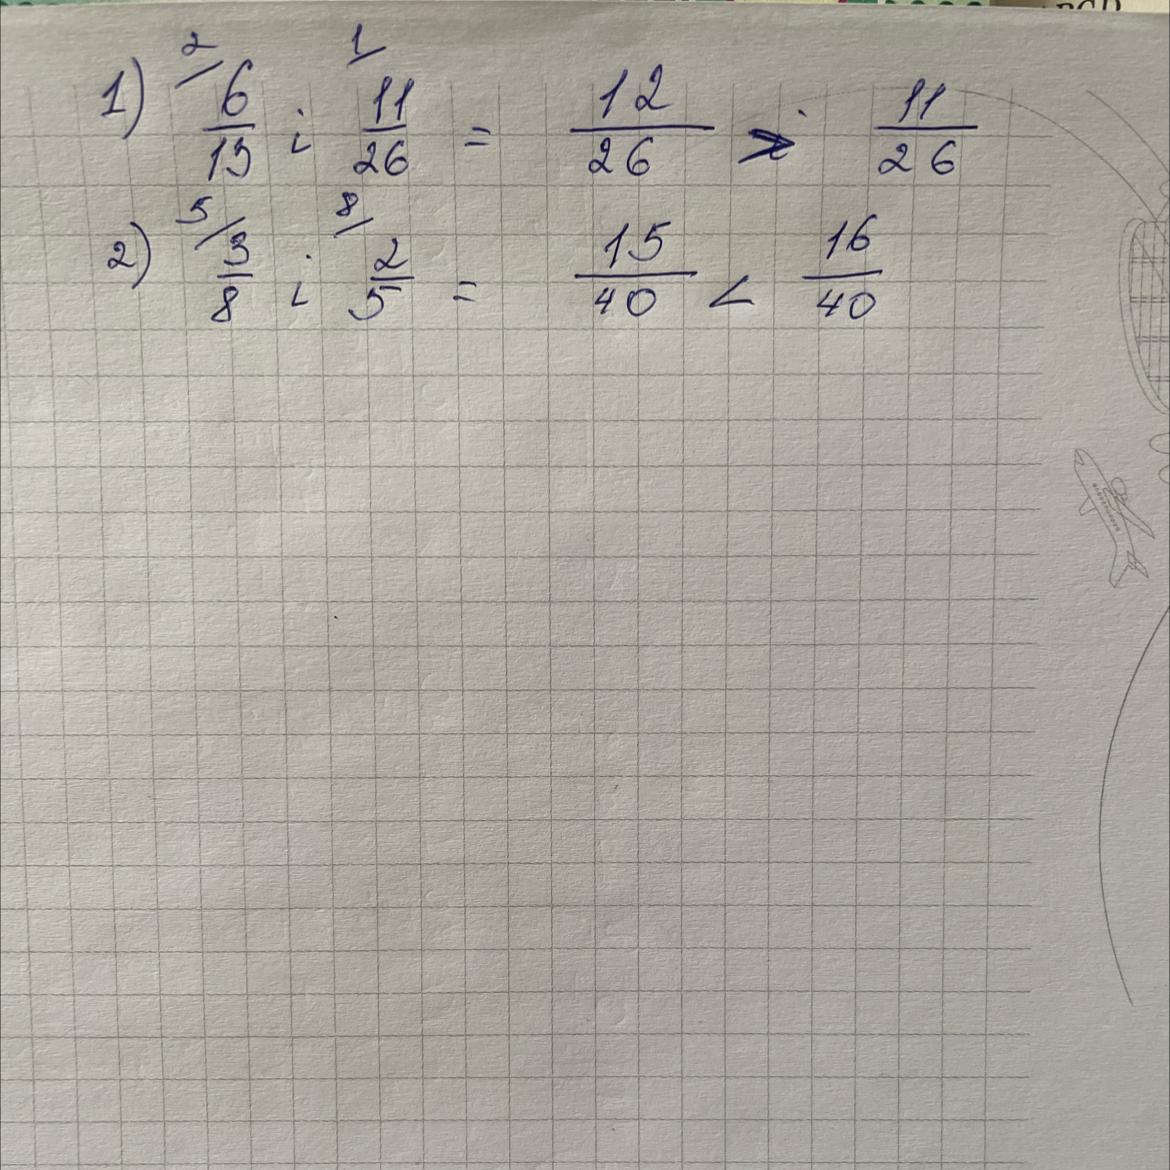 1) 2/ 6/13 i 1/ 11/26 = 12/26 > 11/26
2) 5/ 3/8 i 8/ 2/5 = 15/40 < 16/40